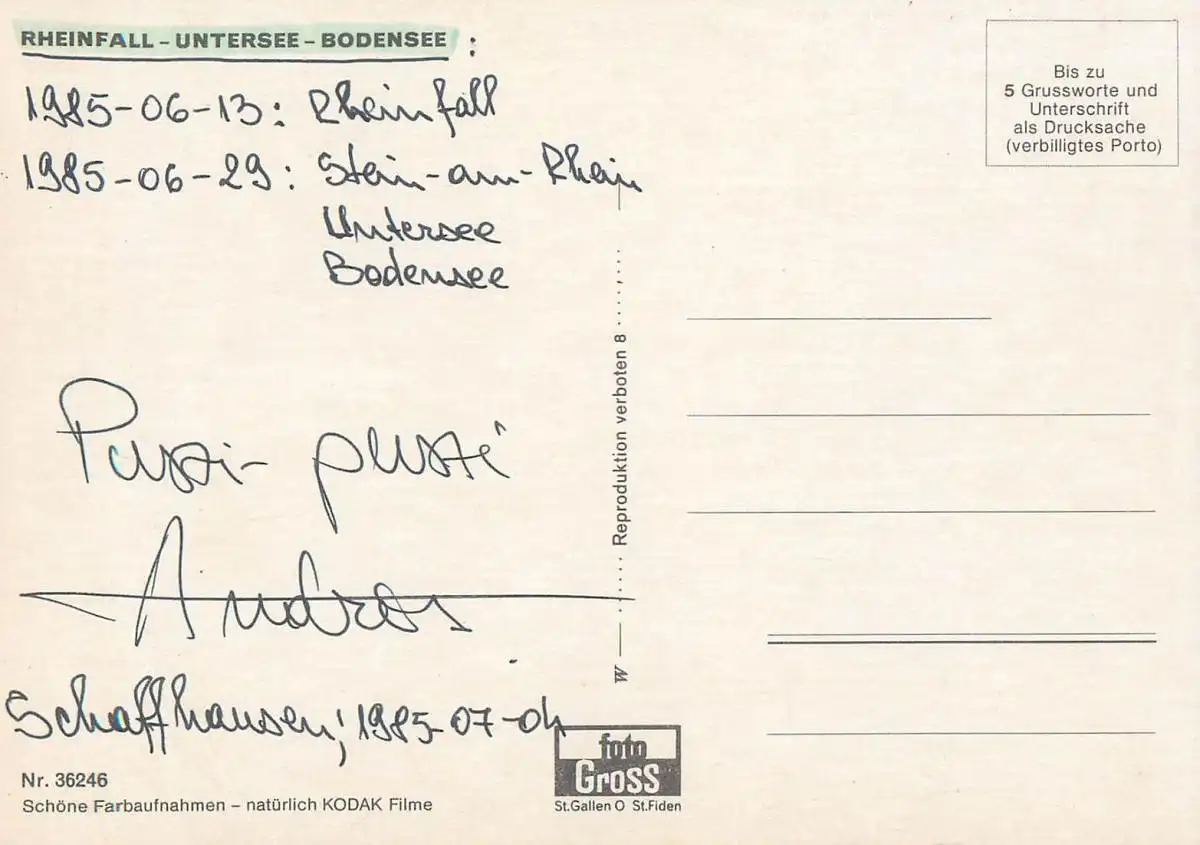 RHEINFALL – UNTERSEE – BODENSEE :
1985-06-13: Rheinfall
1985-06-29: Stein-am-Rhein
Untersee
Bodensee
Puszi-puszi
Andros
Schaffhausen, 1985-07-04
Nr. 36246
Schöne Farbaufnahmen – natürlich KODAK Filme
W — Reproduktion verboten 8
foto
Gross
St.Gallen O St.Fiden
Bis zu
5 Grussworte und
Unterschrift
als Drucksache
(verbilligtes Porto)